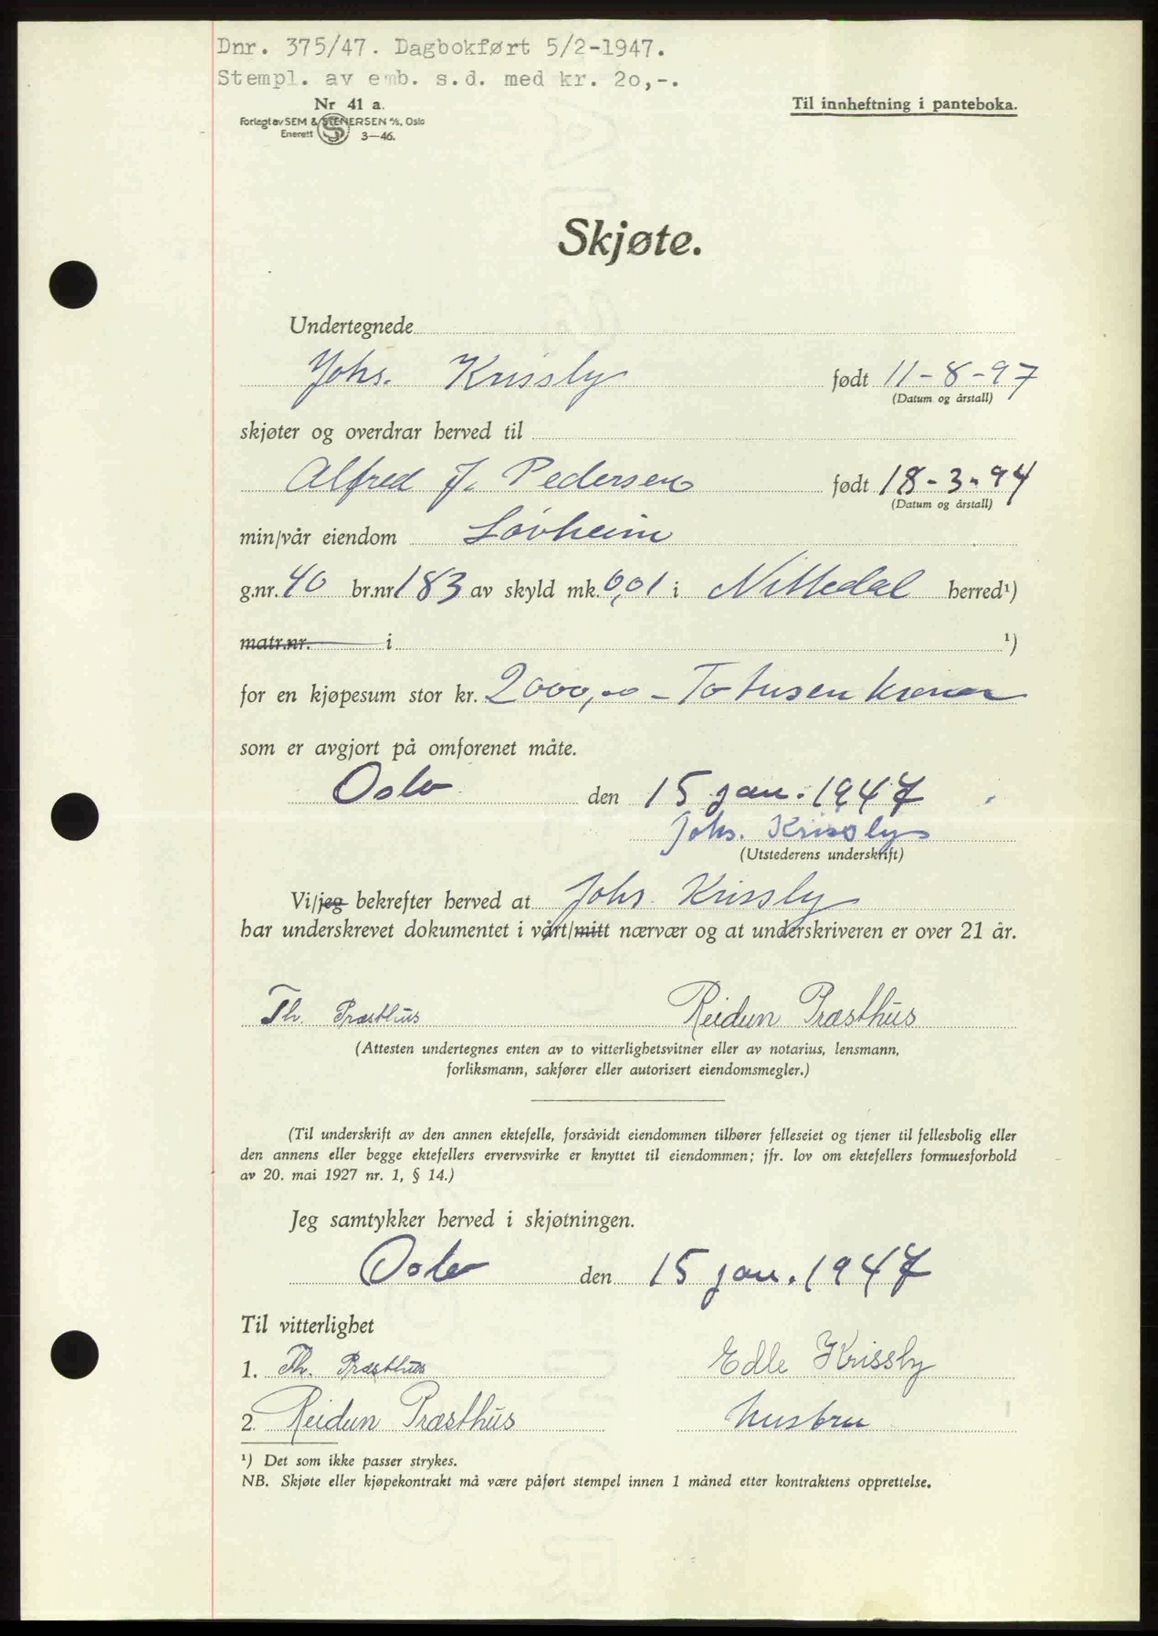 Dnr. 375/47. Dagbokført 5/2-1947.
Stempl. av emb. s.d. med kr. 2o,-.
Nr 41 a.
Forlagt av SEM & STENERSEN A/S, Oslo
Enerett 3—46.
Til innheftning i panteboka.
Skjøte.
Undertegnede
Johs. Krissly født 11-8-97
(Datum og årstall)
skjøter og overdrar herved til
Alfred J. Pedersen født 18-3-94
(Datum og årstall)
min/vår eiendom Løvheim
g.nr. 40 br.nr 183 av skyld mk. 0,01 i Nittedal herred¹)
matr.nr. i ¹)
for en kjøpesum stor kr. 2000,00 - To tusen kroner
som er avgjort på omforenet måte.
Oslo den 15 jan. 1947
Johs. Krissly
(Utstederens underskrift)
Vi/jeg bekrefter herved at Johs. Krissly
har underskrevet dokumentet i vårt/mitt nærvær og at underskriveren er over 21 år.
Th. Præsthus Reidun Præsthus
(Attesten undertegnes enten av to vitterlighetsvitner eller av notarius, lensmann,
forliksmann, sakfører eller autorisert eiendomsmegler.)
(Til underskrift av den annen ektefelle, forsåvidt eiendommen tilhører felleseiet og tjener til fellesbolig eller
den annens eller begge ektefellers ervervsvirke er knyttet til eiendommen; jfr. lov om ektefellers formuesforhold
av 20. mai 1927 nr. 1, § 14.)
Jeg samtykker herved i skjøtningen.
Oslo den 15 jan. 1947
Til vitterlighet
1. Th. Præsthus Edle Krissly
2. Reidun Præsthus husfru
¹) Det som ikke passer strykes.
NB. Skjøte eller kjøpekontrakt må være påført stempel innen 1 måned etter kontraktens opprettelse.